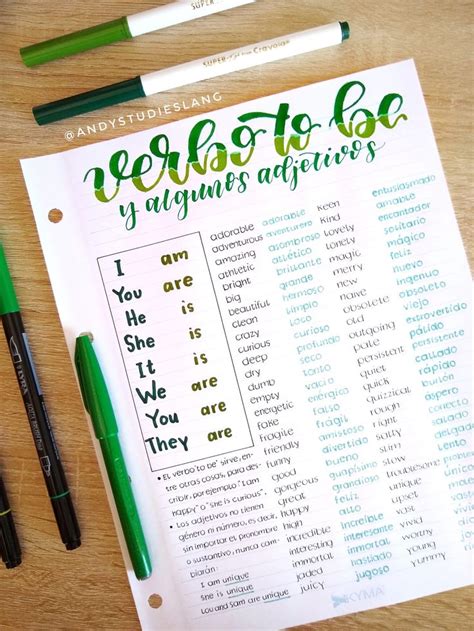 SUPER
SUPER Crayola
@ANDYSTUDIESLANG
verbo to be
y algunos adjetivos
I am
You are
He is
She is
It is
We are
You are
They are
• El verbo "to be" sirve, en-
tre otras cosas, para des-
cribir, por ejemplo "I am
happy" o "she is curious".
• Los adjetivos no tienen
género ni número, es decir,
sin importar el pronombre
o sustantivo, nunca cam-
biarán:
I am unique
She is unique
Lou and Sam are unique
adorable adorable
adventurous aventurero
amazing asombroso
athletic atlético
bright brillante
big grande
beautiful hermoso
clean limpio
crazy loco
curious curioso
deep profundo
dry
dumb
empty vacío
energetic energético
fake falso
fragile frágil
friendly amistoso
funny divertido
good bueno
gorgeous guapísimo
great grandioso
happy feliz
high alto
incredible increíble
interesting interesante
immortal inmortal
jaded hastiado
juicy jugoso
keen entusiasmado
kind amable
lonely solitario
lovely encantador
magic mágico
merry feliz
new nuevo
naive ingenuo
obsolete obsoleto
old viejo
outgoing extrovertido
pale pálido
persistent persistente
patient
quiet callado
quick rápido
quizzical
rough
right
salty salado
slim
smelly
troublesome
unique
upset
vast vasto
vivid
yummy
young
KYMA